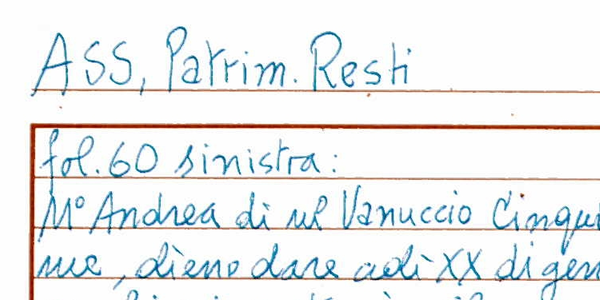 ASS, Patrim. Resti
fol. 60 sinistra:
M° Andrea di Vanuccio
dieno dare adì XX di